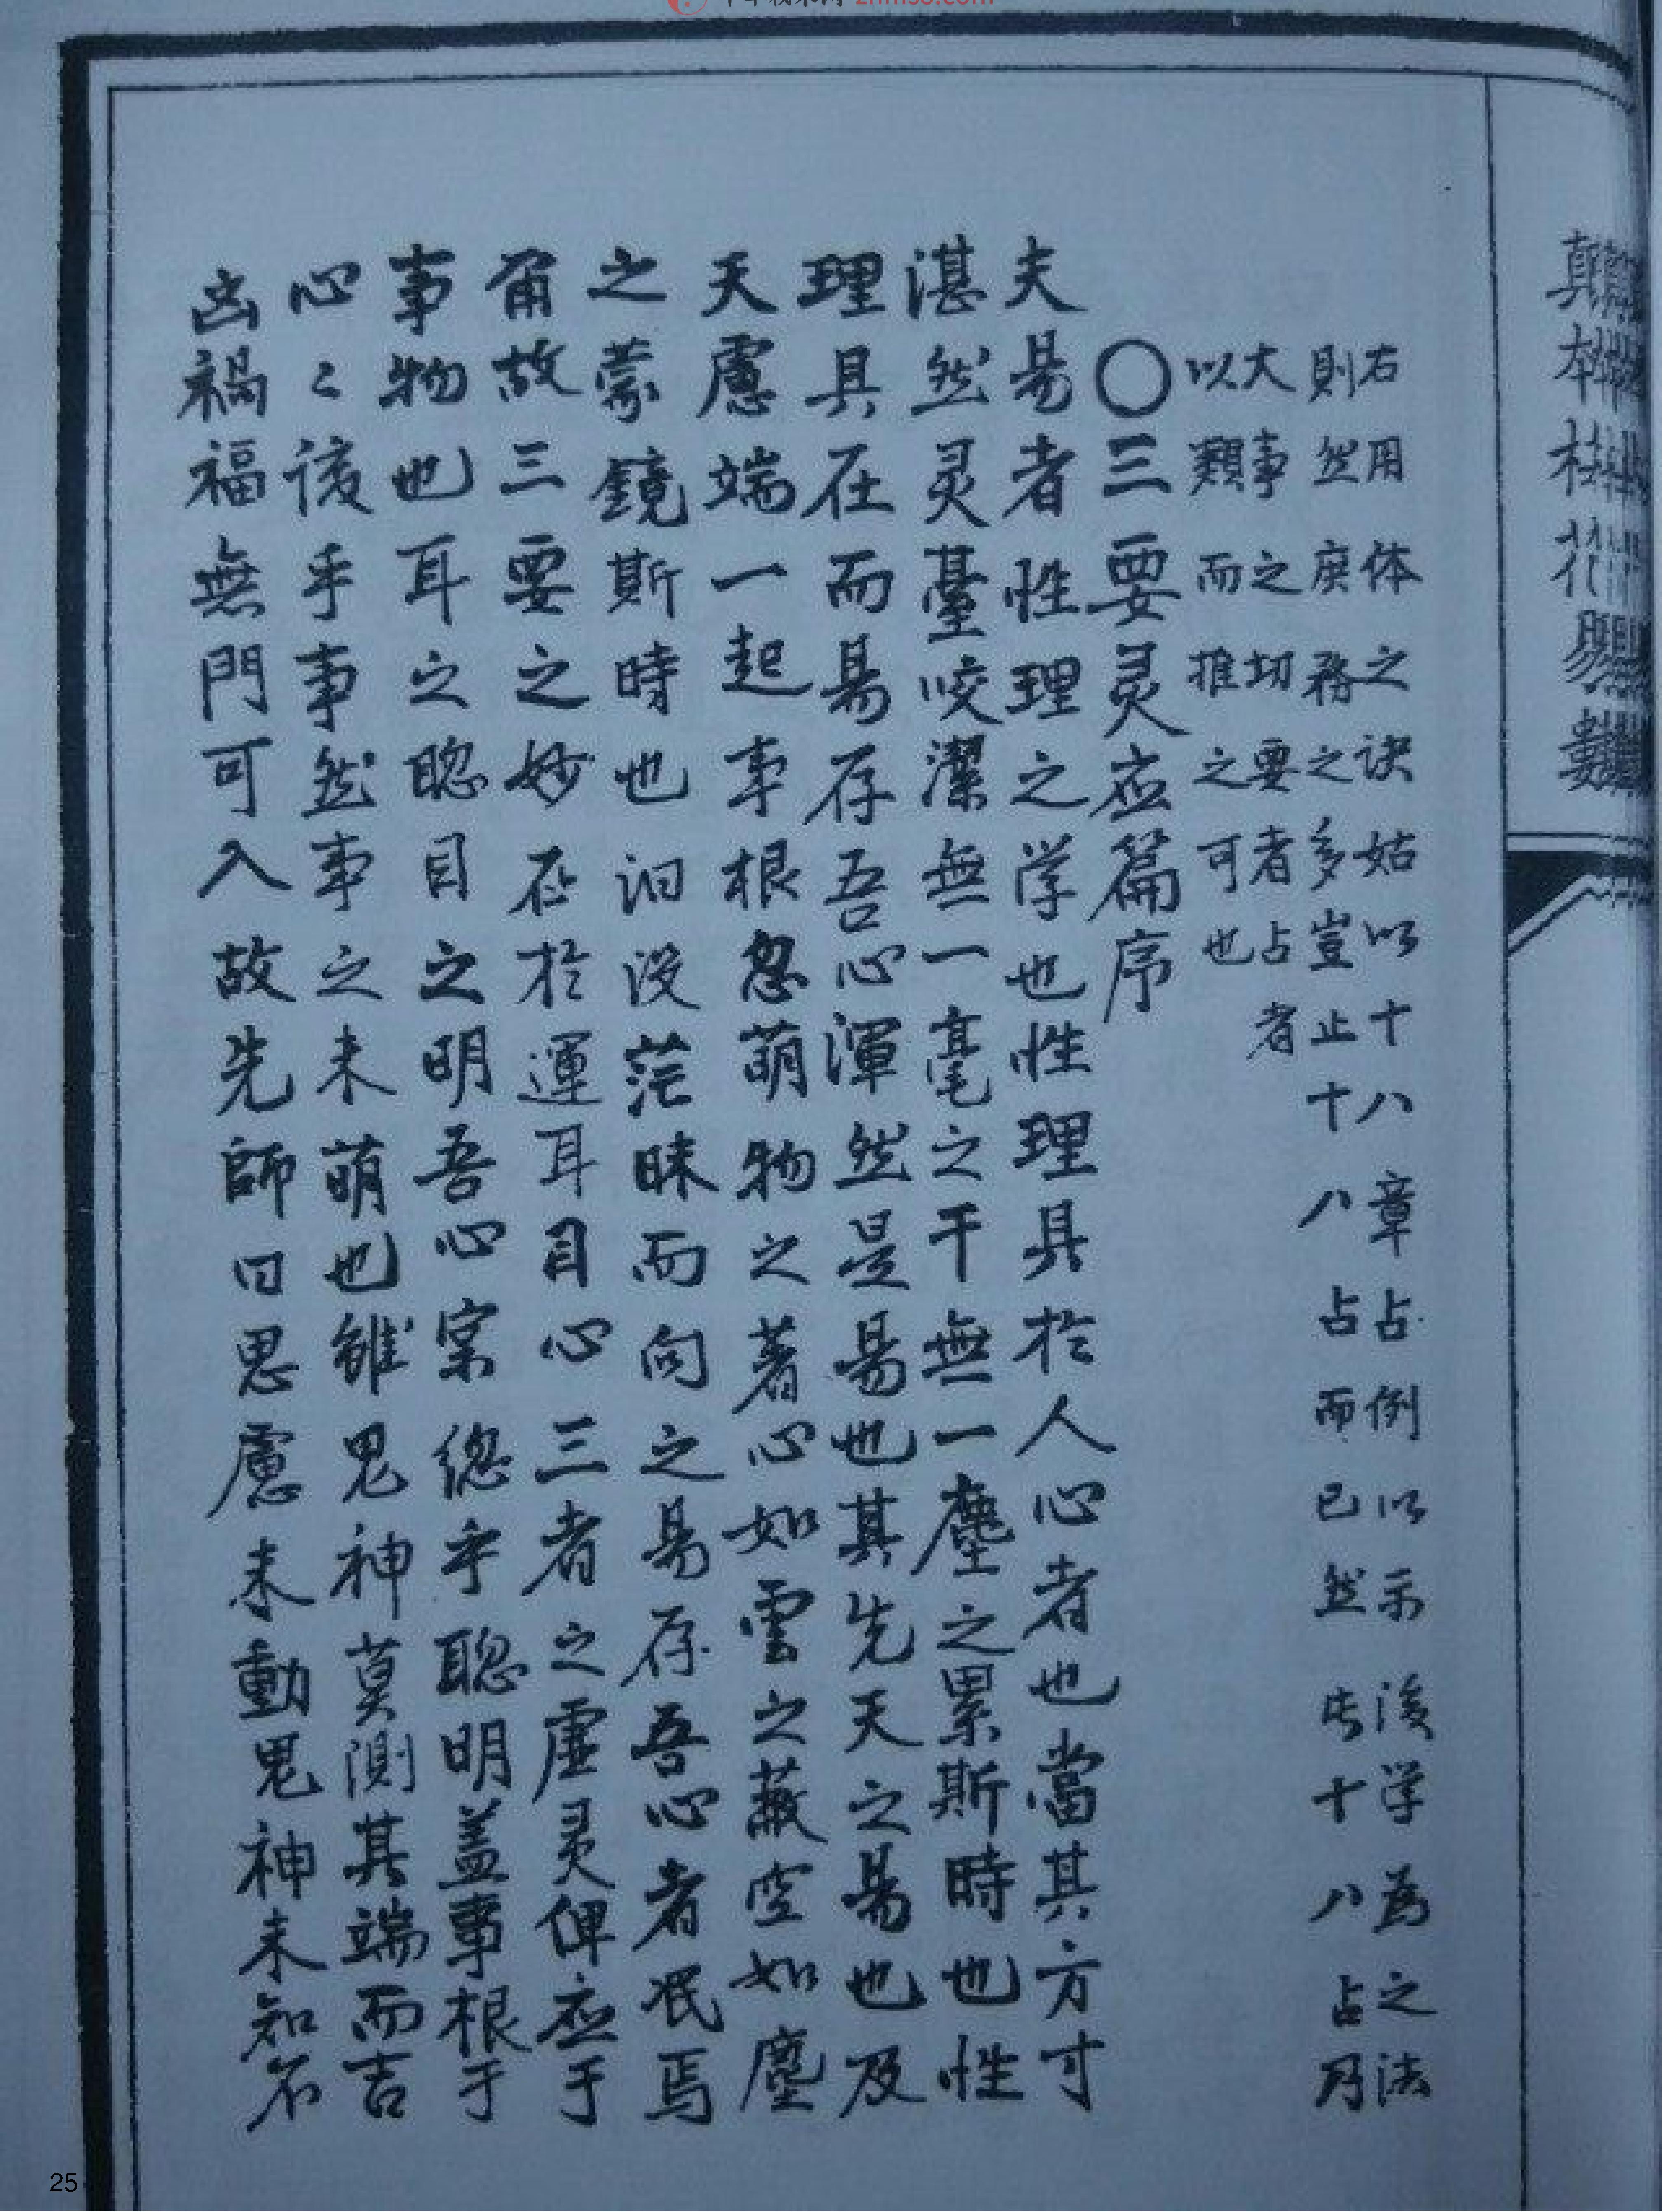 真本梅花易數
右用体之诀姑以十八章占例以示後学為之法
則然庶務之多豈止十八占而已然此十八占乃
大事之切要者占者
以類而推之可也
〇三要灵应篇序
夫易者性理之学也性理具於人心者也當其方寸
湛然灵臺咬潔無一毫之干無一塵之累斯時也性
理具在而易存吾心渾然是易也其先天之易也及
天慮端一起事根忽萌物之著心如雲之蔽空如塵
之蒙鏡斯時也汩没茫昧而向之易存吾心者泯焉
甭故三要之妙在於運耳目心三者之虛灵俾应于
事物也耳之聡目之明吾心寔總乎聡明盖事根于
心〻後乎事然事之未萌也雖鬼神莫測其端而吉
凶禍福無門可入故先師曰思慮未動鬼神未知不
25